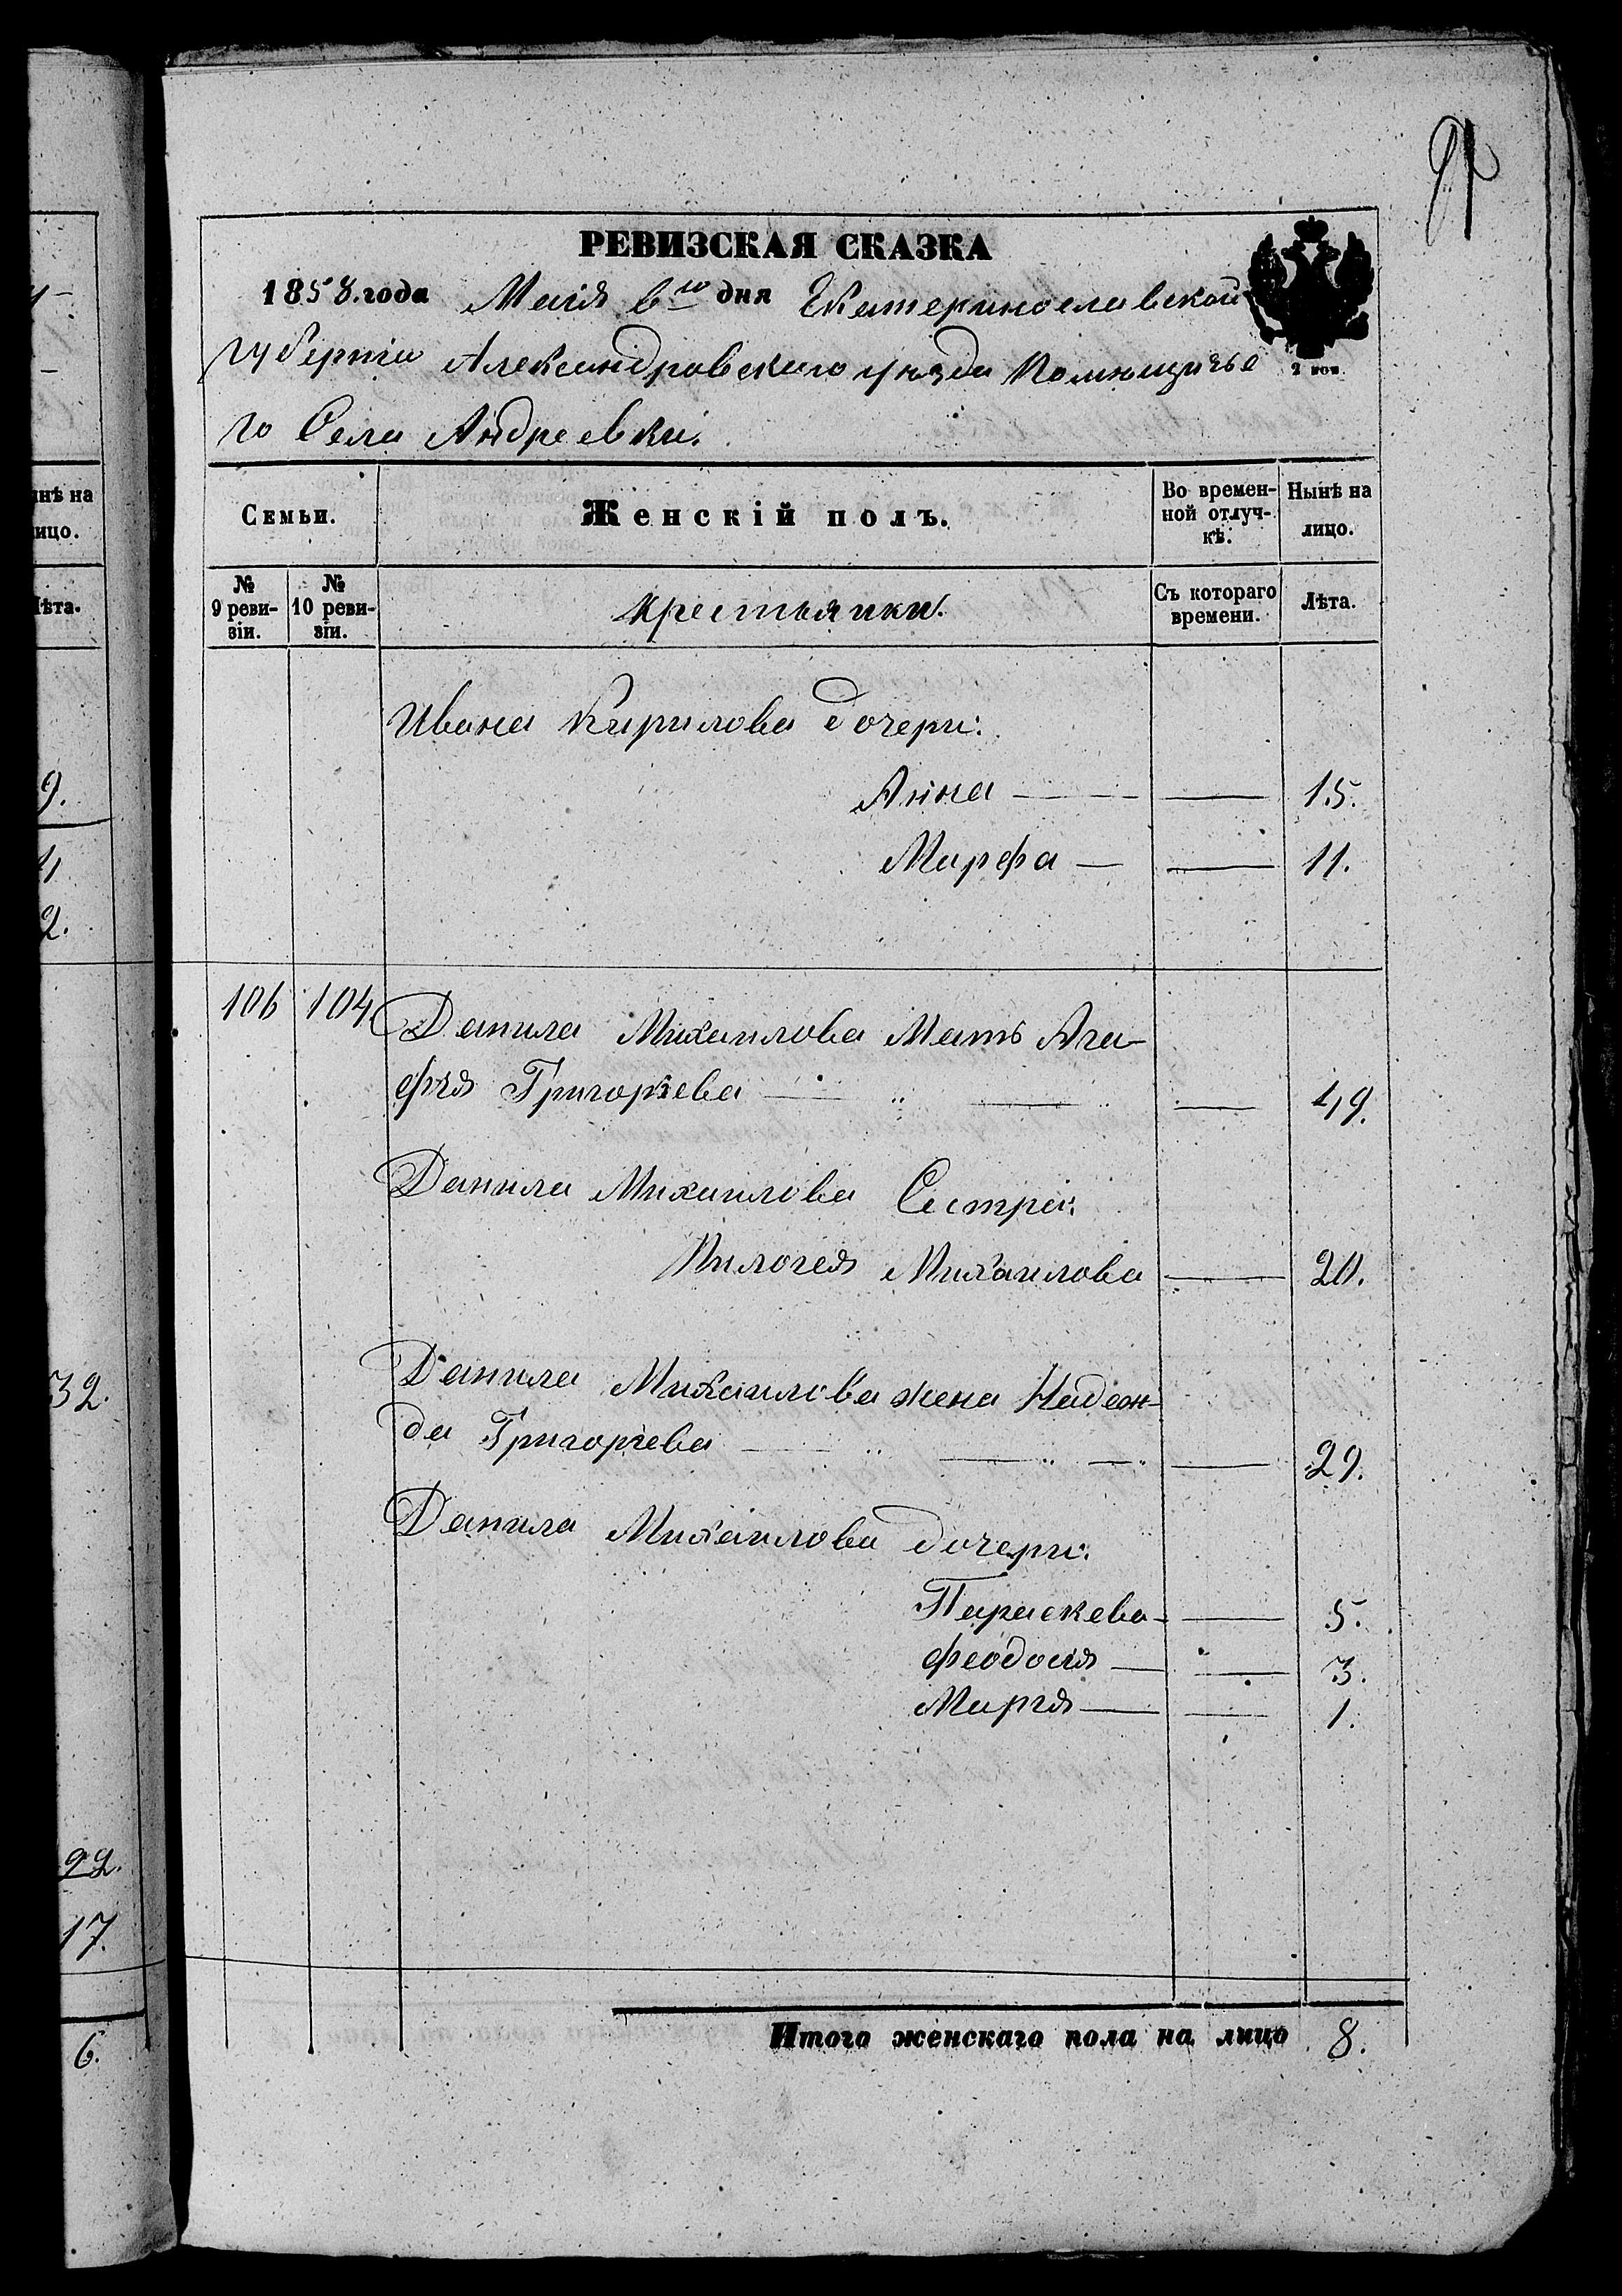 91
РЕВИЗСКАЯ СКАЗКА
1858. года Маія 6го дня Екатеринославской
губерніи Александровскаго уѣзда Помещичье
го Села Андреевки.
2 коп.
Семьи.
Женскій полъ.
Во времен-
ной отлуч-
кѣ.
Нынѣ на
лицо.
№
9 реви-
зіи.
№
10 реви-
зіи.
Крестьянки.
Съ котораго
времени.
Лѣта.
Ивана Кирилова дочери:
Анна — — 15.
Марфа — — 11.
106 104 Данила Михаилова Мать Ага-
фия Григорьева — " — " — 49.
Данила Михаилова Сестра:
Михаилова — 20.
Данила Михаилова жена Надеж-
да Григорьева — " — " — " — 29.
Данила Михаилова дочери:
Параскева — — 5.
Феодосия — — 3.
Мария — — 1.
Итого женскаго пола на лицо 8.
инѣ на
ицо.
Лѣта.
9.
4
2.
32.
22.
17.
6.